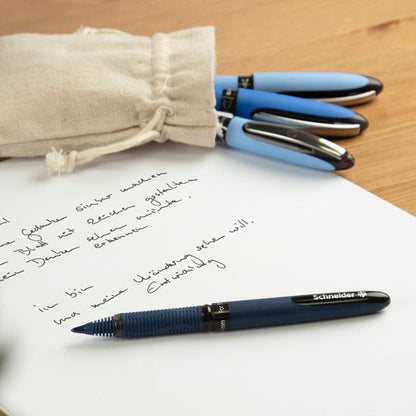 Gedanken sichtbar machen
Blatt mit Zeichen gestalten
Denken sehen möchte.
erkennen
ich bin
und meine Veränderung sehen will.
Entwicklung
Schneider